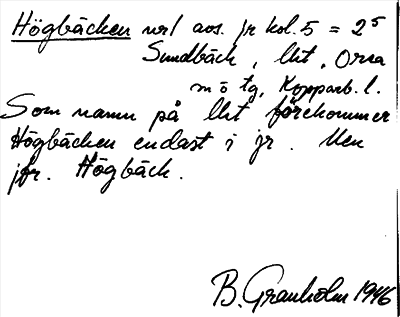 Högbäcken nr 1 avs. jr kol. 5 = 2⁵
Sundbäck, lht, Orsa
m o tg, Kopparb. l.
Som namn på lht förekommer
Högbäcken endast i jr. Men
jfr. Högbäck.
B. Granholm 1946